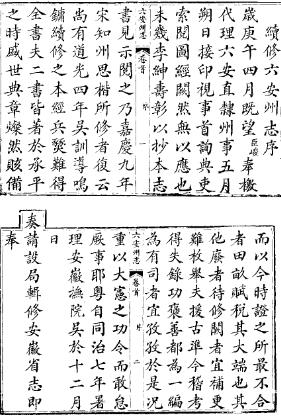 續修六安州志序
歲庚午四月既望臣璐奉檄
代理六安直隸州事五月
朔日接印視事首詢典吏
索閱圖經闕然無以應也
未幾李紳壽彰以抄本志
六安州志
卷首
序
一
書見示閱之乃嘉慶九年
宋知州思楷所修者後云
尚有道光四年吳訓導鳴
鏞續修之本經兵燹難得
全書夫二書皆者於承平
之時盛世典章燦然賅備
而以今時證之所最不合
者田畝賦稅其大端也其
他廢者待修闕者宜補更
難枚舉夫援古準今稽考
得失錄功褒善都為一編
為有司者宜孜孜於是況
六安州志
卷首
序
二
重以大憲之功令而敢怠
厥事耶粵自同治七年署
理安徽撫院吳於十二月
日
奏請設局輯修安徽省志即
奉